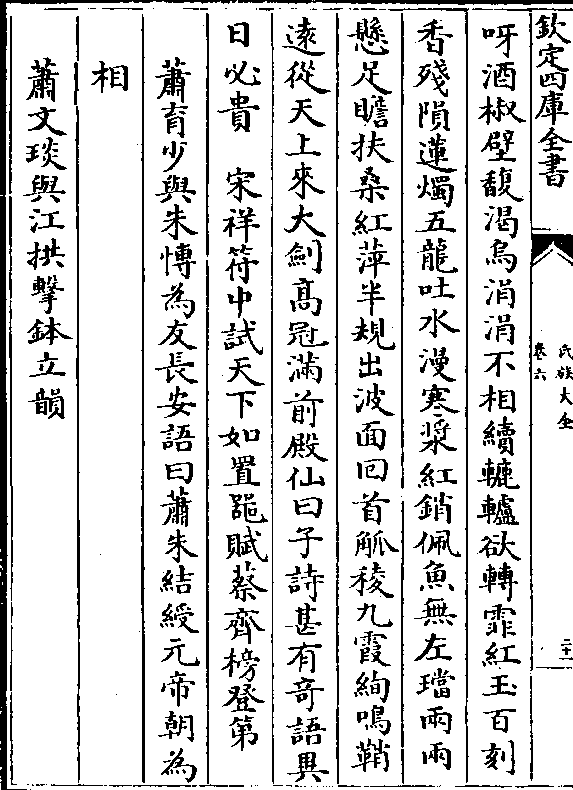 欽定四庫全書
氏族大全
卷六
二十一
呀酒椒壁馥渴烏涓涓不相續轆轤欲轉霏紅玉百刻
香殘隕蓮燭五龍吐水漫寒漿紅銷佩魚無左璫兩兩
懸足瞻扶桑紅萍半規出波面囘首觚稜九霞絢鳴鞘
遠從天上來大劍髙冠滿前殿仙曰子詩甚有奇語異
日必貴　宋祥符中試天下如置器賦蔡齊榜登第
蕭育少與朱愽為友長安語曰蕭朱結綬元帝朝為
相
蕭文琰與江拱擊鉢立韻